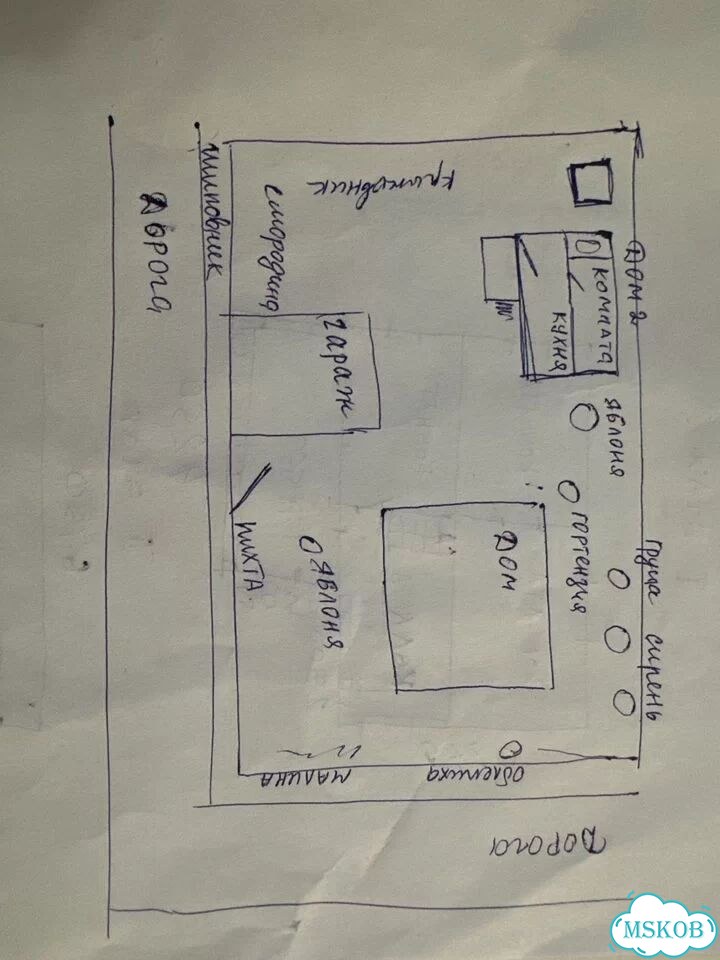 Дорога
Шиповник
Смородина
Крыжовник
Гараж
Дом 2
Комната
Кухня
Яблоня
Гортензия
Дом
Груша
Сирень
Пихта
Яблоня
Малина
Облепиха
Дорога
MSKOB